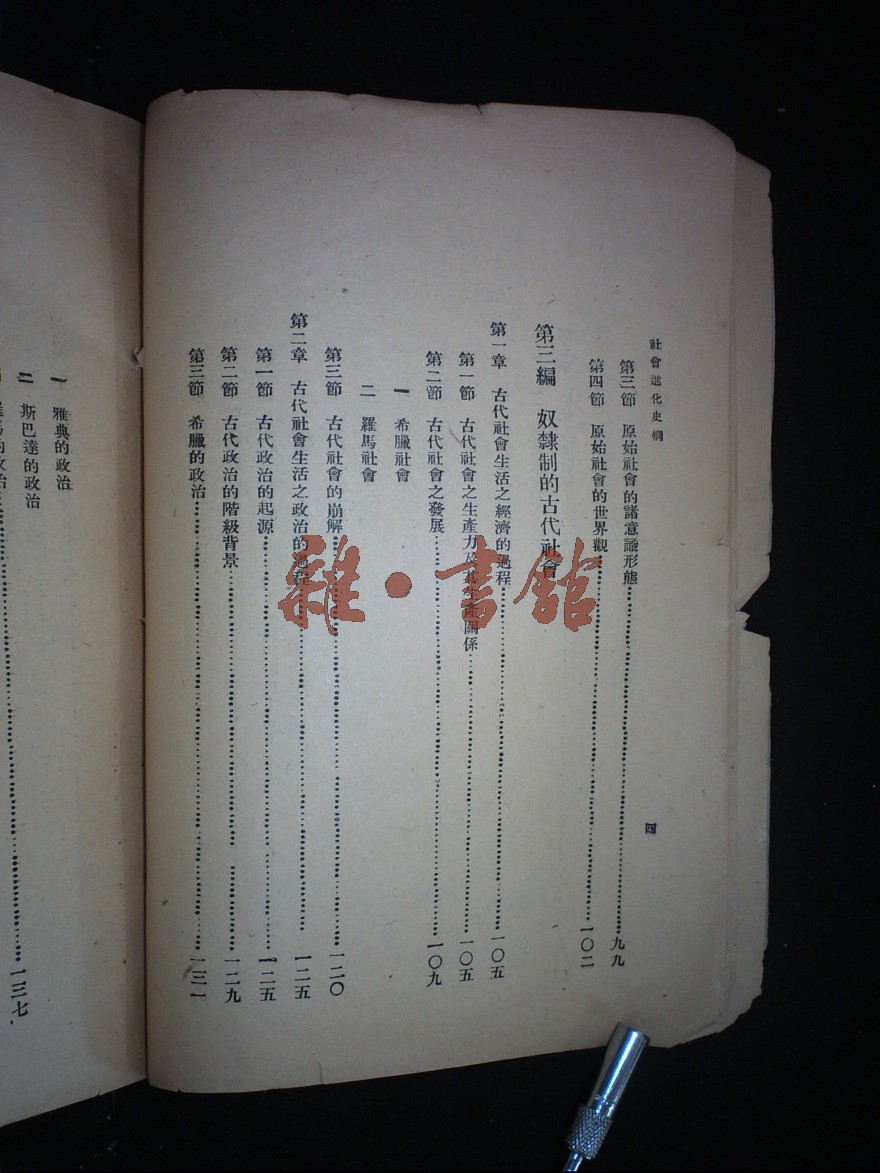 社會進化史綱
四
第三節 原始社會的諸意識形態……九九
第四節 原始社會的世界觀……一〇二
第三編 奴隸制的古代社會
第一章 古代社會生活之經濟的過程……一〇五
第一節 古代社會之生產力及其生產關係……一〇五
第二節 古代社會之發展……一〇九
一 希臘社會
二 羅馬社會
第三節 古代社會的崩解……一二〇
第二章 古代社會生活之政治的過程……一二五
第一節 古代政治的起源……一二五
第二節 古代政治的階級背景……一二九
第三節 希臘的政治……一三一
一 雅典的政治
二 斯巴達的政治
羅馬的政治……一三七
雜·書館